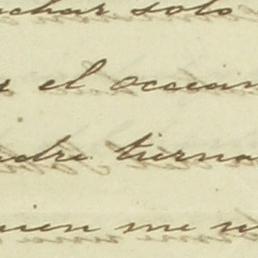 char solo
el ocean
dre tierna
uien me